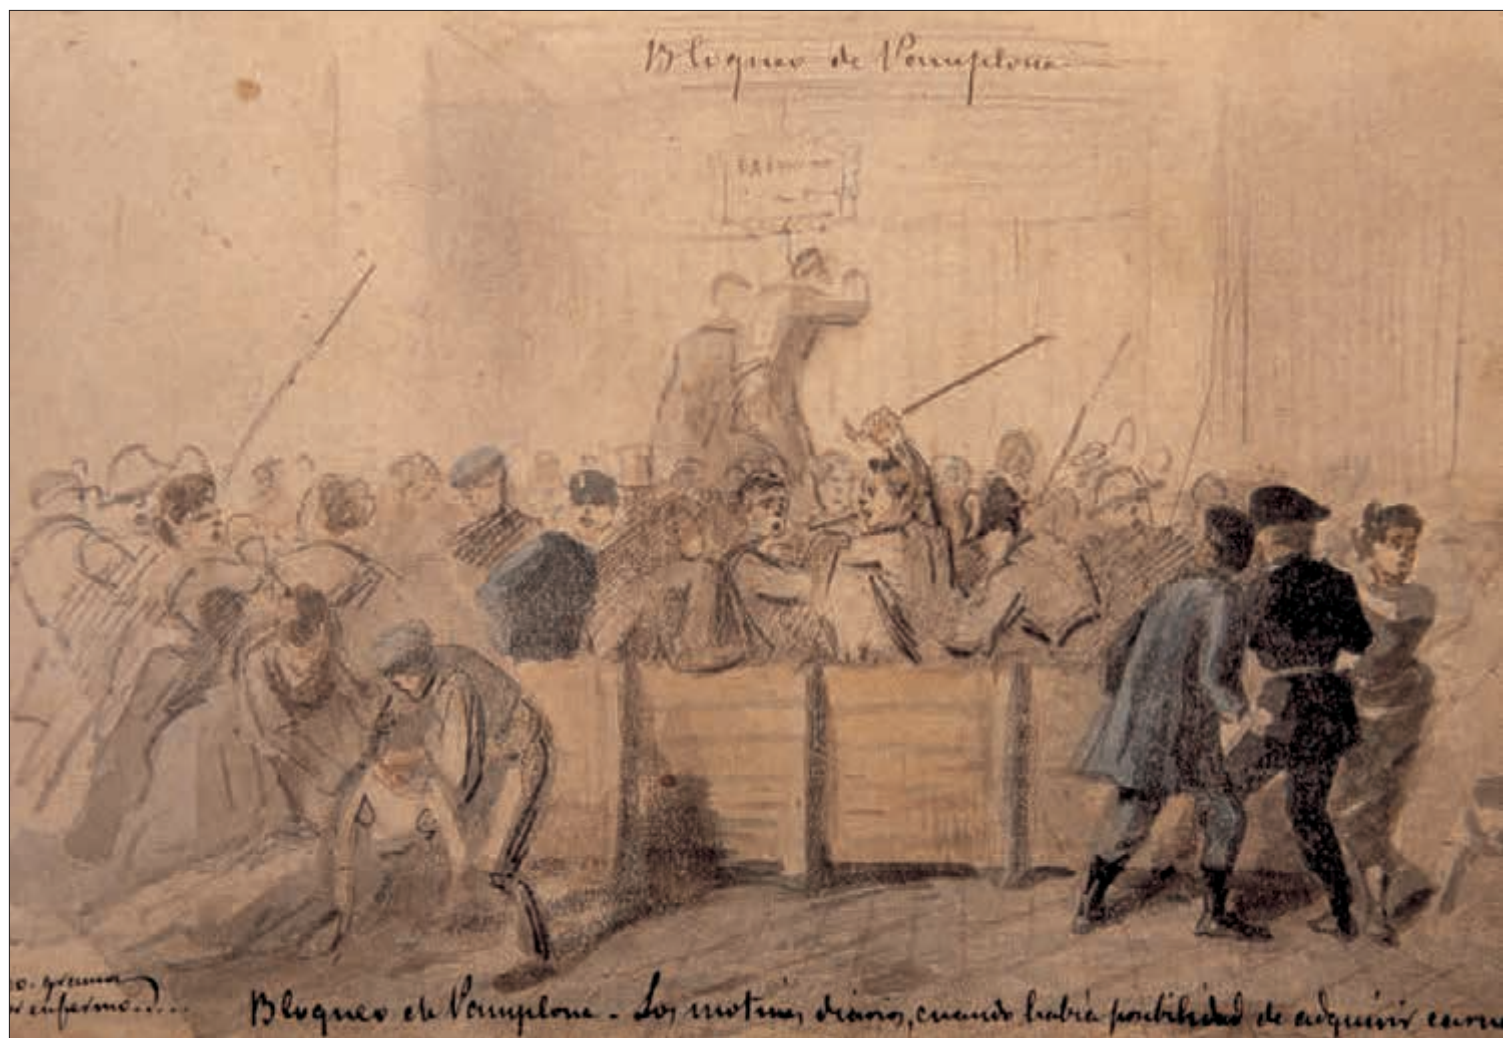 Bloqueo de Pamplona
enfermo....
Bloqueo de Pamplona - Los motines diarios, cuando había posibilidad de adquirir carne